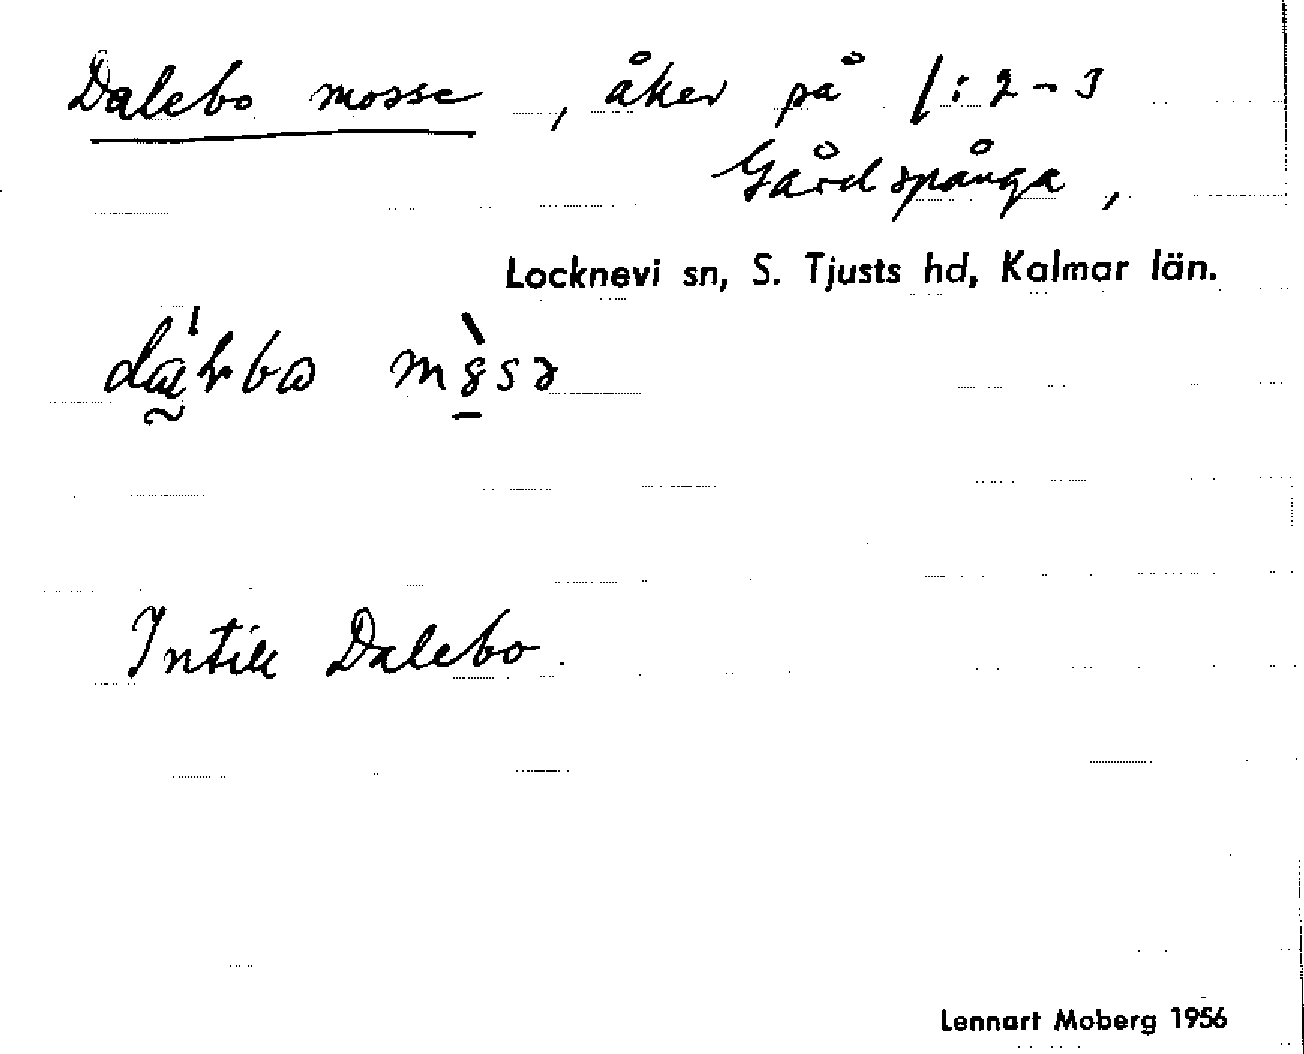 Dalebo mosse, åker på 1:2-3
Gårdspånga,
Locknevi sn, S. Tjusts hd, Kalmar län.
Intill Dalebo.
Lennart Moberg 1956